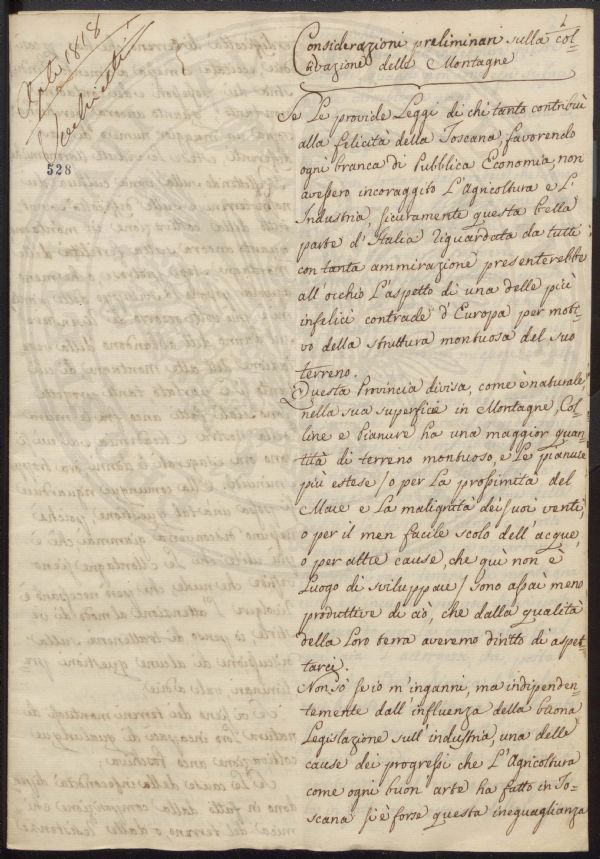 1
Aprile 1818
528
Considerazioni preliminari sulla col-
tivazione delle Montagne
Se Le provide Leggi di chi tanto contribuì
alla felicità della Toscana, favorendo
ogni branca di Pubblica Economia, non
avessero incoraggito L'Agricoltura e L'
Industria, sicuramente questa bella
parte d'Italia riguardata da tutti
con tanta ammirazione presenterebbe
all'occhio L'aspetto di una delle più
infelici contrade d'Europa per moti-
vo della struttura montuosa del suo
terreno.
Questa Provincia divisa, come è naturale,
nella sua superficie in Montagne, Col-
line e Pianure ha una maggior quan-
tità di terreno montuoso, e Le pianure
più estese /o per La prossimità del
Mare e La malignità dei suoi venti,
o per il men facile scolo dell'acque,
o per altre cause, che quì non è
Luogo di sviluppare/ sono assai meno
produttive di ciò, che dalla qualità
della Loro terra averemo diritto di aspet-
tarci.
Non sò se io m'inganni, ma indipenden-
temente dall'influenza della buona
Legislazione sull'industria, una delle
cause dei progressi che L'Agricoltura
come ogni buon arte ha fatto in To-
scana si è forse questa ineguaglianza